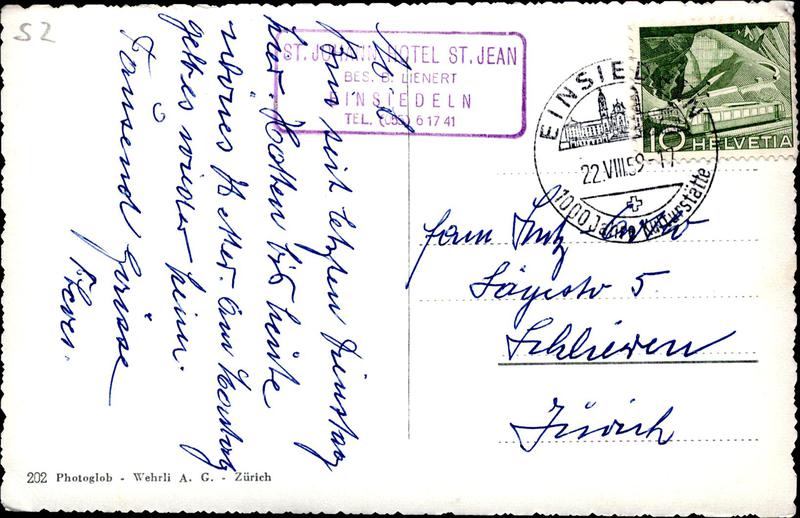 52
ST. JOHANN HOTEL ST. JEAN
BES. B. LIENERT
EINSIEDELN
TEL. (055) 6 17 41
EINSIEDELN
22.VIII.59-17
1000 Jahre Kulturstätte
10 HELVETIA
Bin seit letzten Dienstag
hier. Hatten bis heute
schönes Wetter. Am
geht es wieder heim.
Tausend Grüsse
Fam.
Sägestr 5
Schlieren
Zürich
202 Photoglob - Wehrli A. G. - Zürich